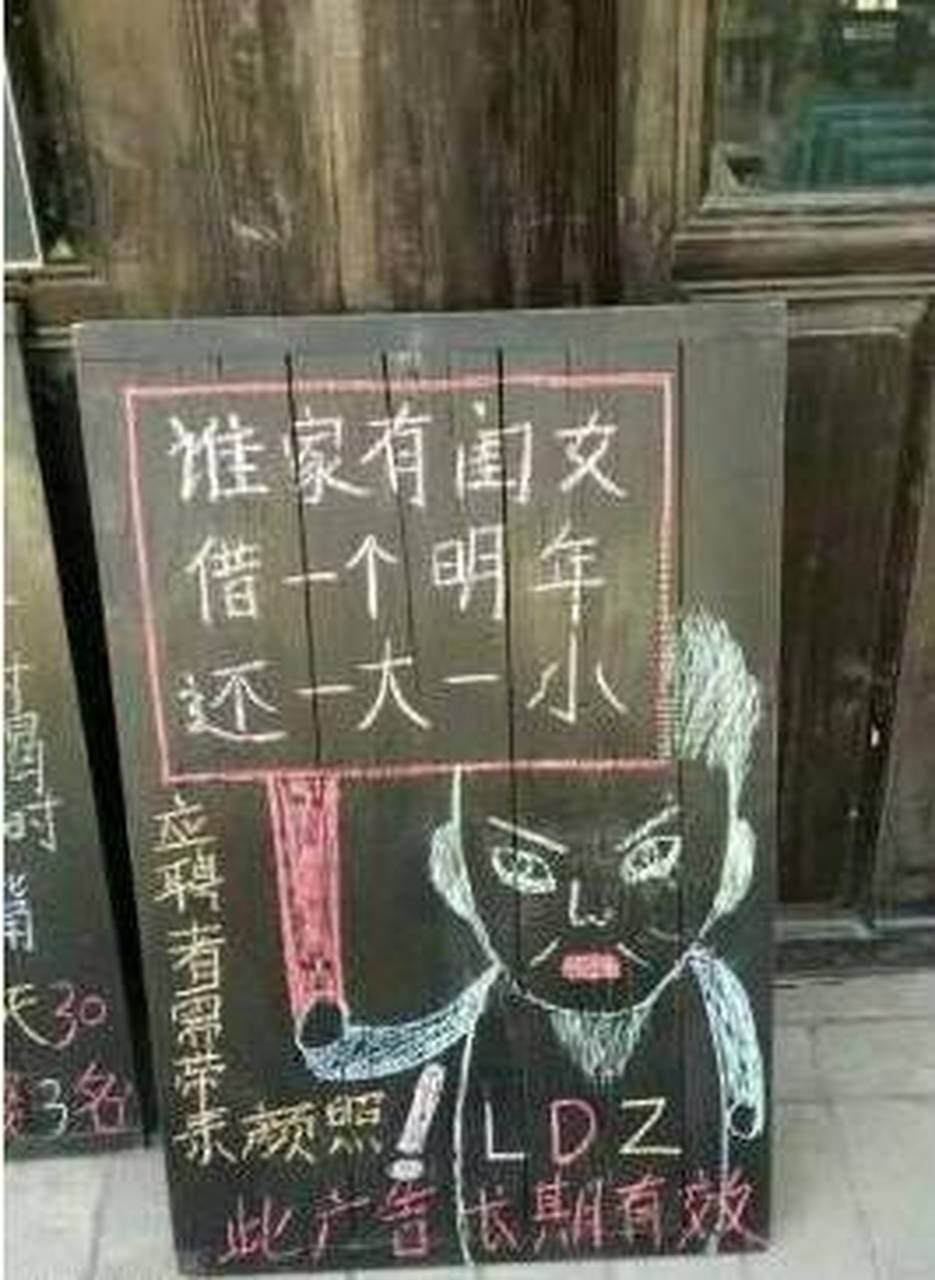 谁家有闺女
借一个明年
还一大一小
应聘者需带
素颜照！
LDZ
此广告长期有效
时
天30
3名